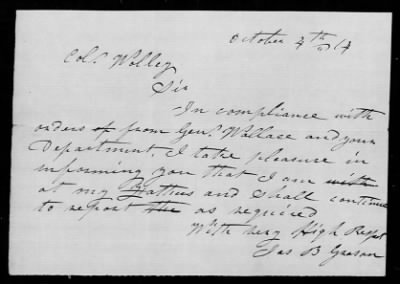 October 4th /64
Col. Wolley
Sir
In compliance with
orders of from Genl. Wallace and your
Department. I take pleasure in
informing you that I am with
at my and shall continue
to report the as required
With very High Respt
Jas B